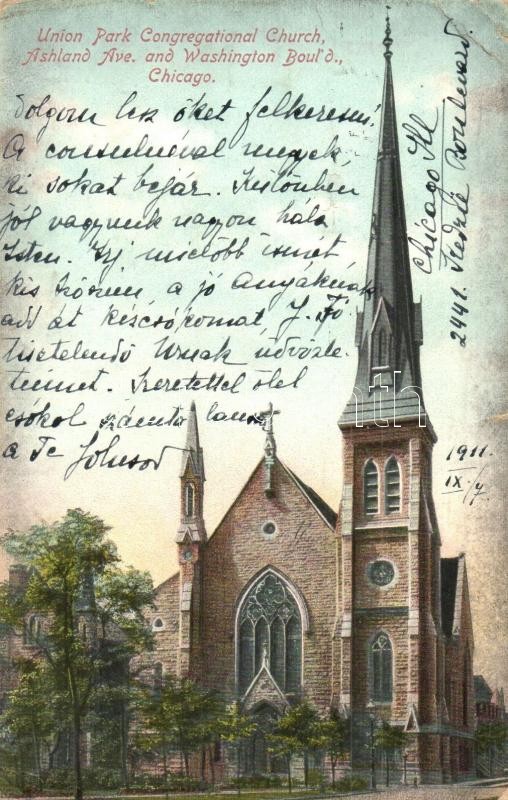 Union Park Congregational Church,
Ashland Ave. and Washington Boul'd.,
Chicago.
Dolgom lesz őket felkeresni.
A consulnéval megyek,
ki sokat bejár. Különben
jól vagyunk nagyon hála
Isten. Írj mielőbb ismét
kis szívem a jó anyáknak
add át kézcsókomat, J. Fő
tisztelendő Urnak üdvözle-
temet. Szeretettel ölel
csókol számta lanszor
a Te
Chicago Ill
2441. Kedzie Boulevard.
1911.
IX./7